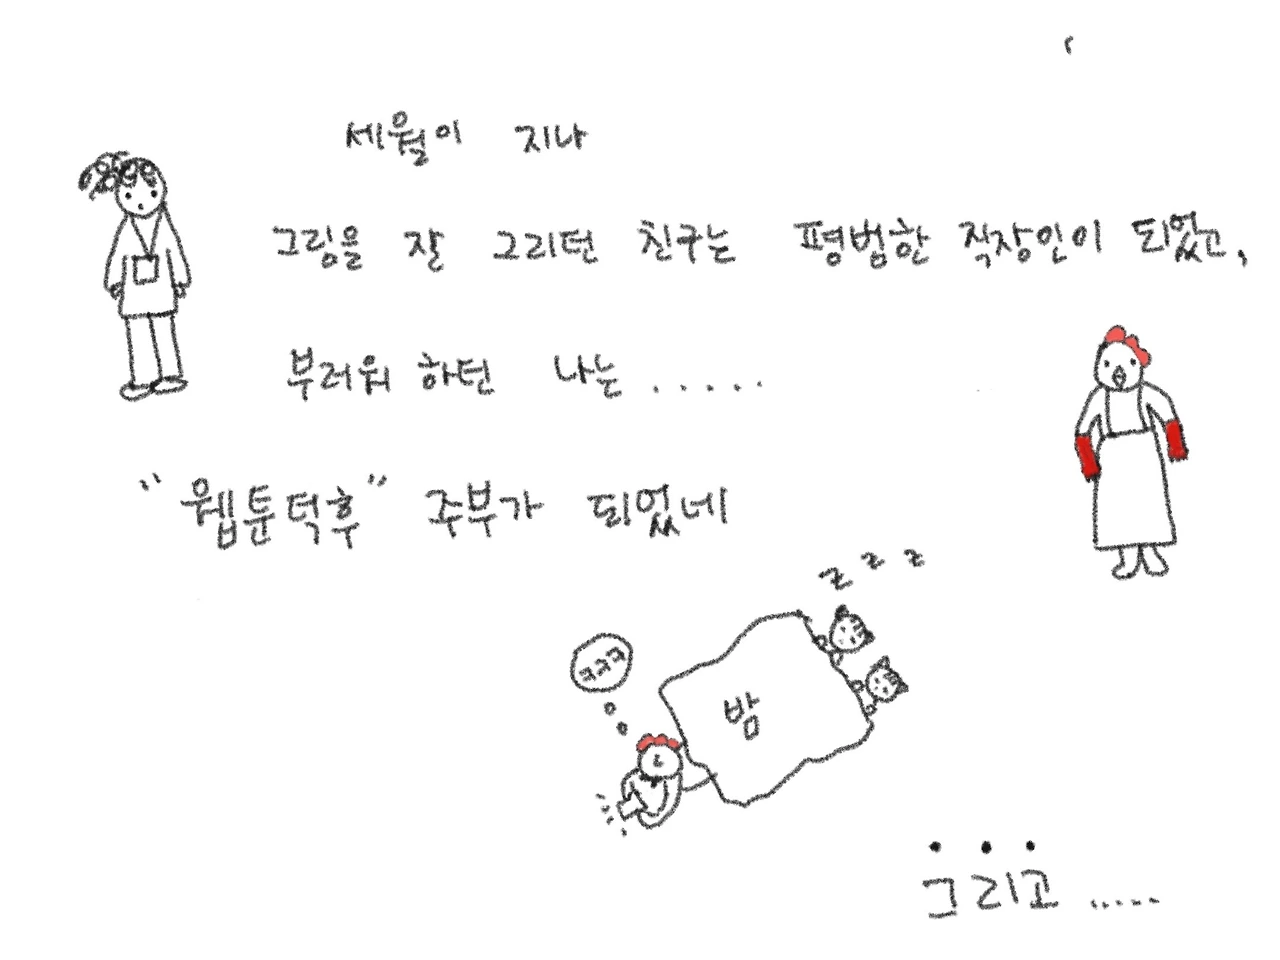 세월이 지나
그림을 잘 그리던 친구는 평범한 직장인이 되었고,
부러워 하던 나는 ......
"웹툰덕후" 주부가 되었네
z z z
ㅋㅋㅋ
밤
그리고 .....